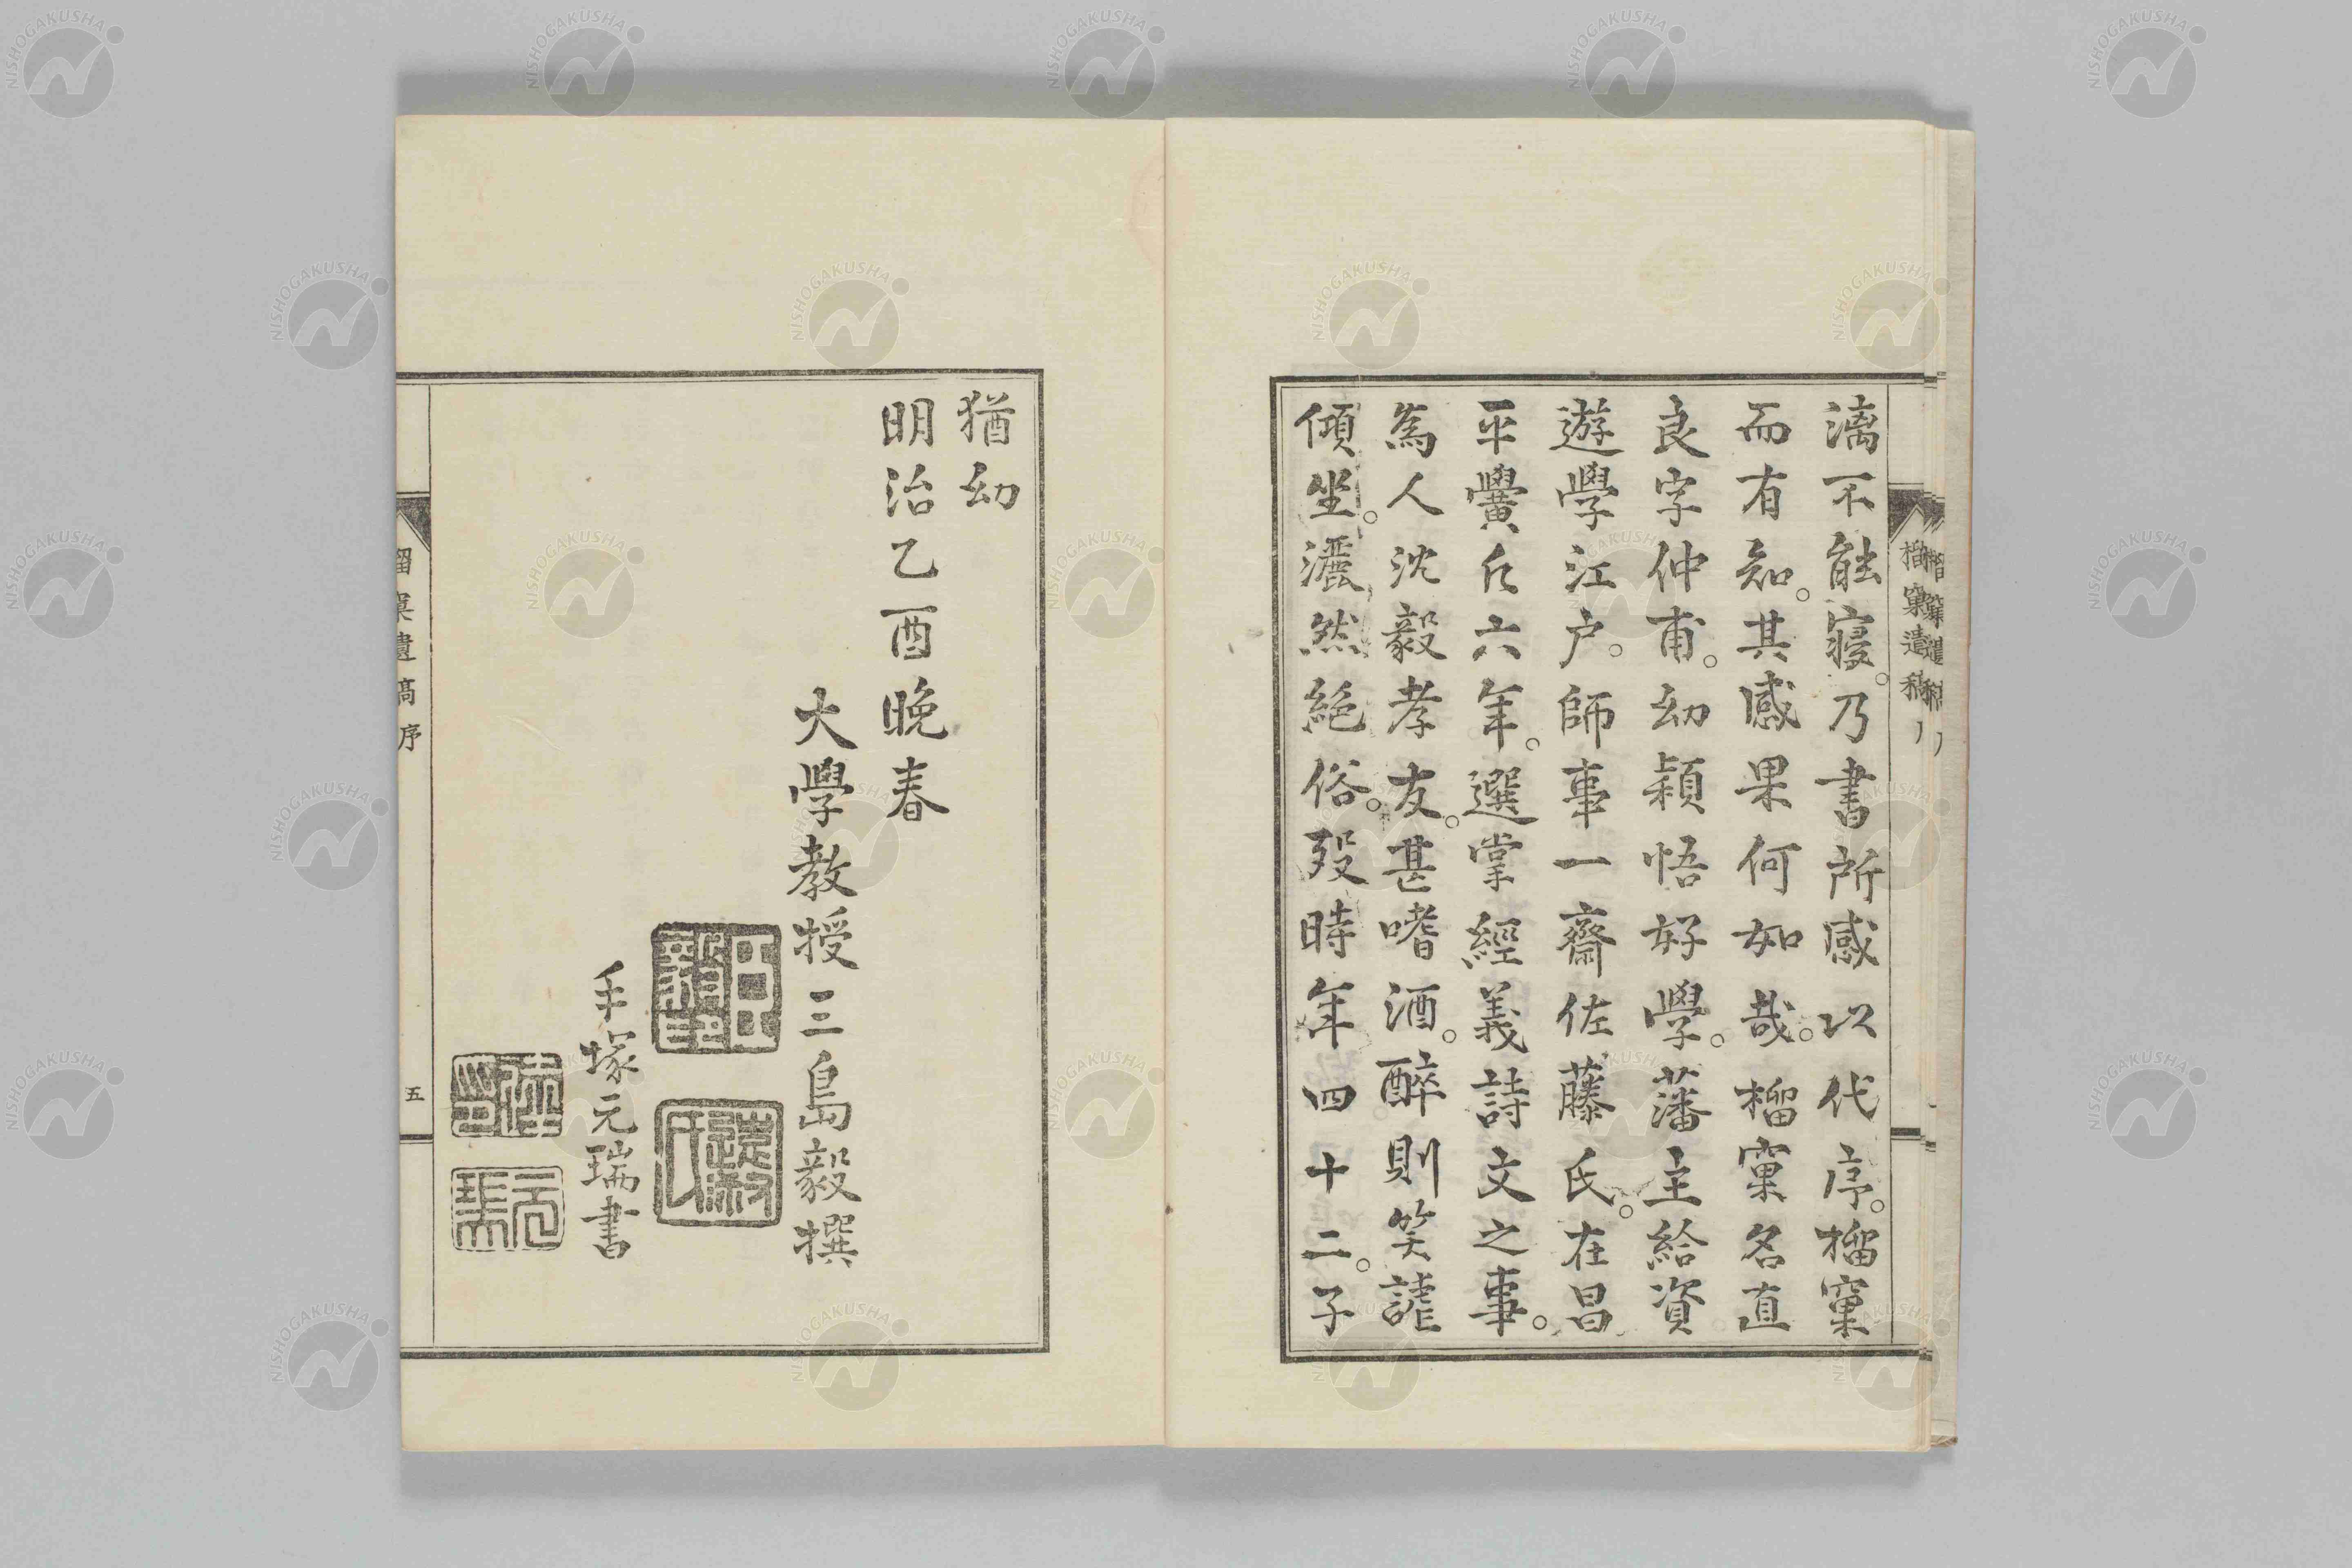 漓不能寝。乃書所感以代序。榴窠
而有知。其感果何如哉。榴窠名直
良字仲甫。幼穎悟好學。藩主給資
遊學江户。師事一齋佐藤氏。在昌
平黌凡六年。選掌經義詩文之事。
為人沈毅孝友。甚嗜酒。醉則笑謔
傾坐。灑然絕俗。歿時年四十二。子
猶幼
明治乙酉晩春
大學教授三島毅撰
手塚元瑞書
榴窠遺稿序
五
NISHOGAKUSHA